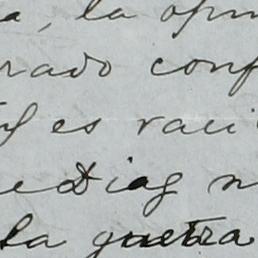 a, la opin
rado conf
es vaci
e Diaz n
la guerra